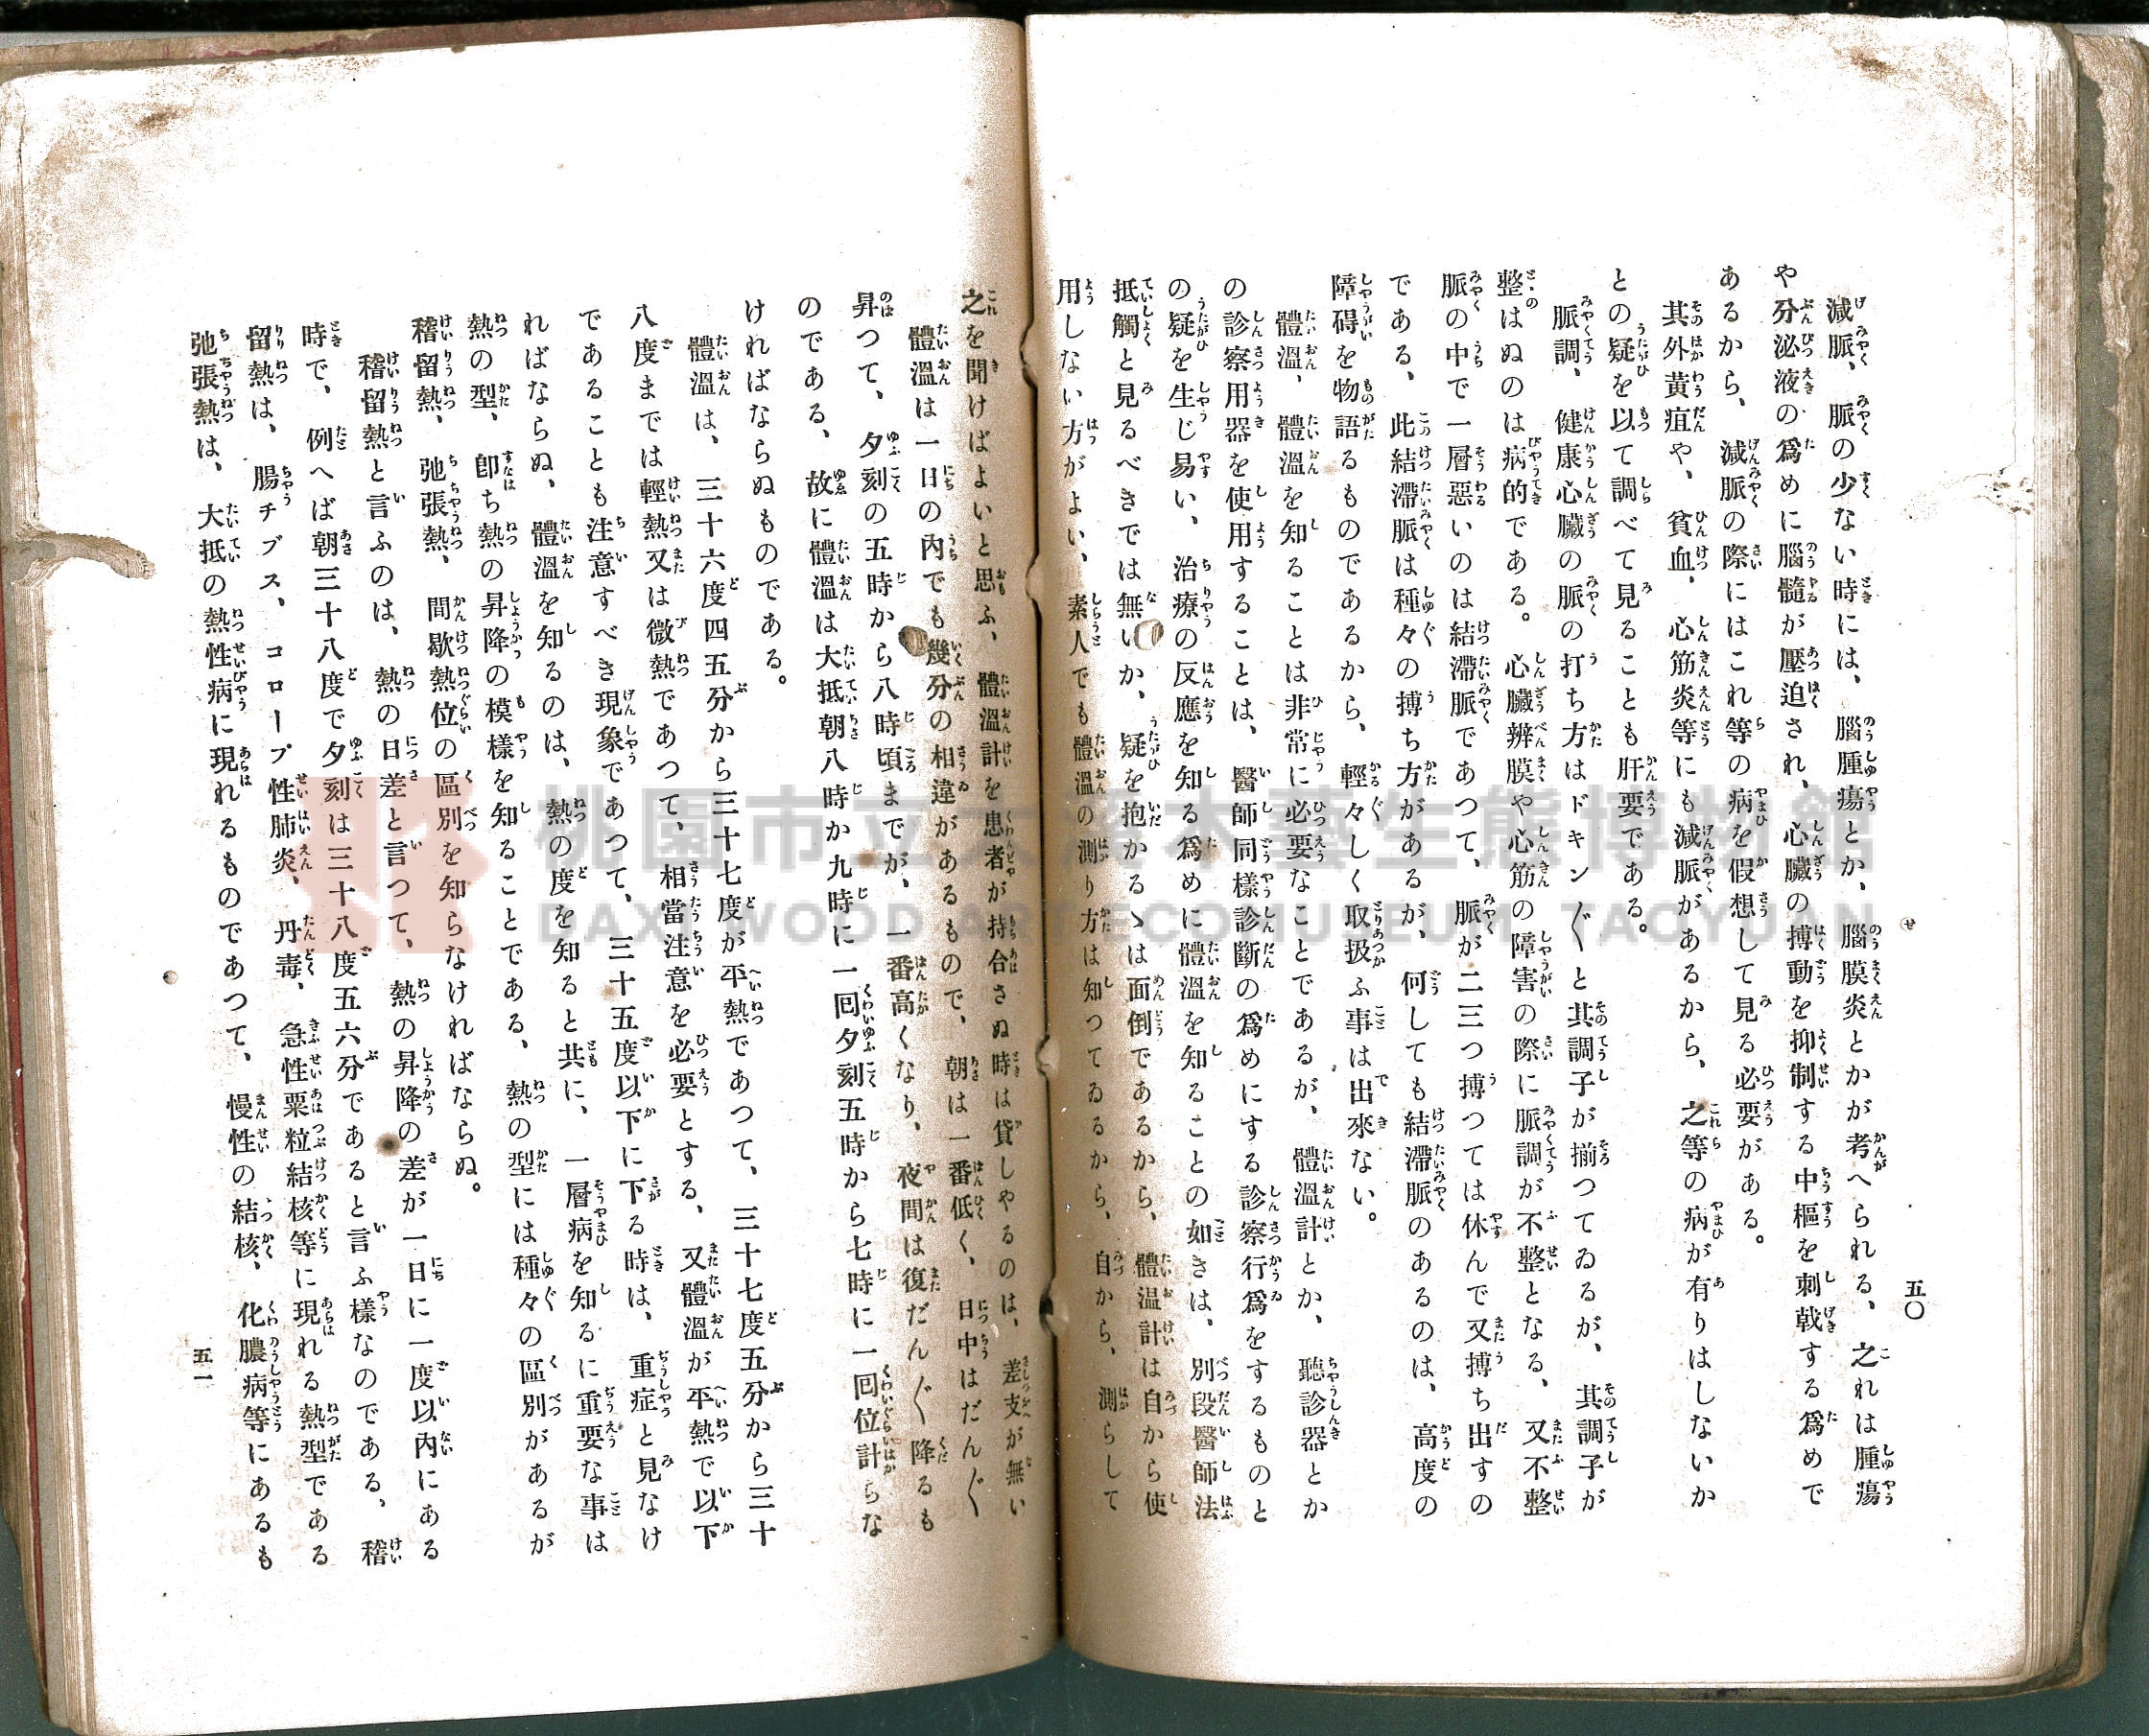 五〇
減脈、脈の少ない時には、腦腫瘍とか、腦膜炎とかが考へられる、之れは腫瘍
や分泌液の爲めに腦髓が壓迫され、心臟の搏動を抑制する中樞を刺戟する爲めで
あるから、減脈の際にはこれ等の病を假想して見る必要がある。
其外黃疸や、貧血、心筋炎等にも減脈があるから、之等の病が有りはしないか
との疑を以て調べて見ることも肝要である。
脈調、健康心臟の脈の打ち方はドキン〱と其調子が揃つてゐるが、其調子が
整はぬのは病的である。心臟辨膜や心筋の障害の際に脈調が不整となる、又不整
脈の中で一層惡いのは結滯脈であつて、脈が二三つ搏つては休んで又搏ち出すの
である、此結滯脈は種々の搏ち方があるが、何しても結滯脈のあるのは、高度の
障碍を物語るものであるから、輕々しく取扱ふ事は出來ない。
體溫、體溫を知ることは非常に必要なことであるが、體溫計とか、聽診器とか
の診察用器を使用することは、醫師同樣診斷の爲めにする診察行爲をするものと
の疑を生じ易い、治療の反應を知る爲めに體溫を知ることの如きは、別段醫師法
抵觸と見るべきでは無いか、疑を抱かるゝは面倒であるから、體溫計は自から使
用しない方がよい、素人でも體溫の測り方は知つてゐるから、自から、測らして
之を聞けばよいと思ふ、體溫計を患者が持合さぬ時は貸しやるのは、差支が無い
體溫は一日の內でも幾分の相違があるもので、朝は一番低く、日中はだん〲
昇つて、夕刻の五時から八時頃までが、一番高くなり、夜間は復だん〲降るも
のである、故に體溫は大抵朝八時か九時に一囘夕刻五時から七時に一囘位計らな
ければならぬものである。
體溫は、三十六度四五分から三十七度が平熱であつて、三十七度五分から三十
八度までは輕熱又は微熱であつて、相當注意を必要とする、又體溫が平熱で以下
であることも注意すべき現象であつて、三十五度以下に下る時は、重症と見なけ
ればならぬ、體溫を知るのは、熱の度を知ると共に、一層病を知るに重要な事は
熱の型、卽ち熱の昇降の模樣を知ることである、熱の型には種々の區別があるが
稽留熱、弛張熱、間歇熱位の區別を知らなければならぬ。
稽留熱と言ふのは、熱の日差と言つて、熱の昇降の差が一日に一度以內にある
時で、例へば朝三十八度で夕刻は三十八度五六分であると言ふ樣なのである、稽
留熱は、腸チブス、コロープ性肺炎、丹毒、急性粟粒結核等に現れる熱型である
弛張熱は、大抵の熱性病に現れるものであつて、慢性の結核、化膿病等にあるも
五一
桃園市立大溪木藝生態博物館
DAXI WOOD ART ECOMUSEUM TAOYUAN